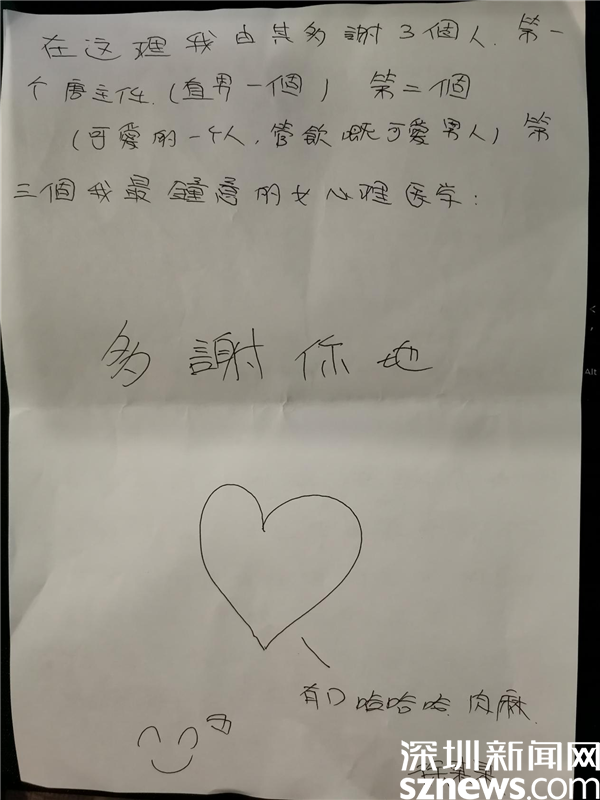 在这理我由其多謝3個人.第一
个唐主任.(直男一個) 第二個
(可愛的一个人,管飲嘅可愛男人)第
三個我最鐘意的女心理医学:
多謝你地
有D哈哈哈 肉麻.
Alt
深圳新闻网
sznews.com